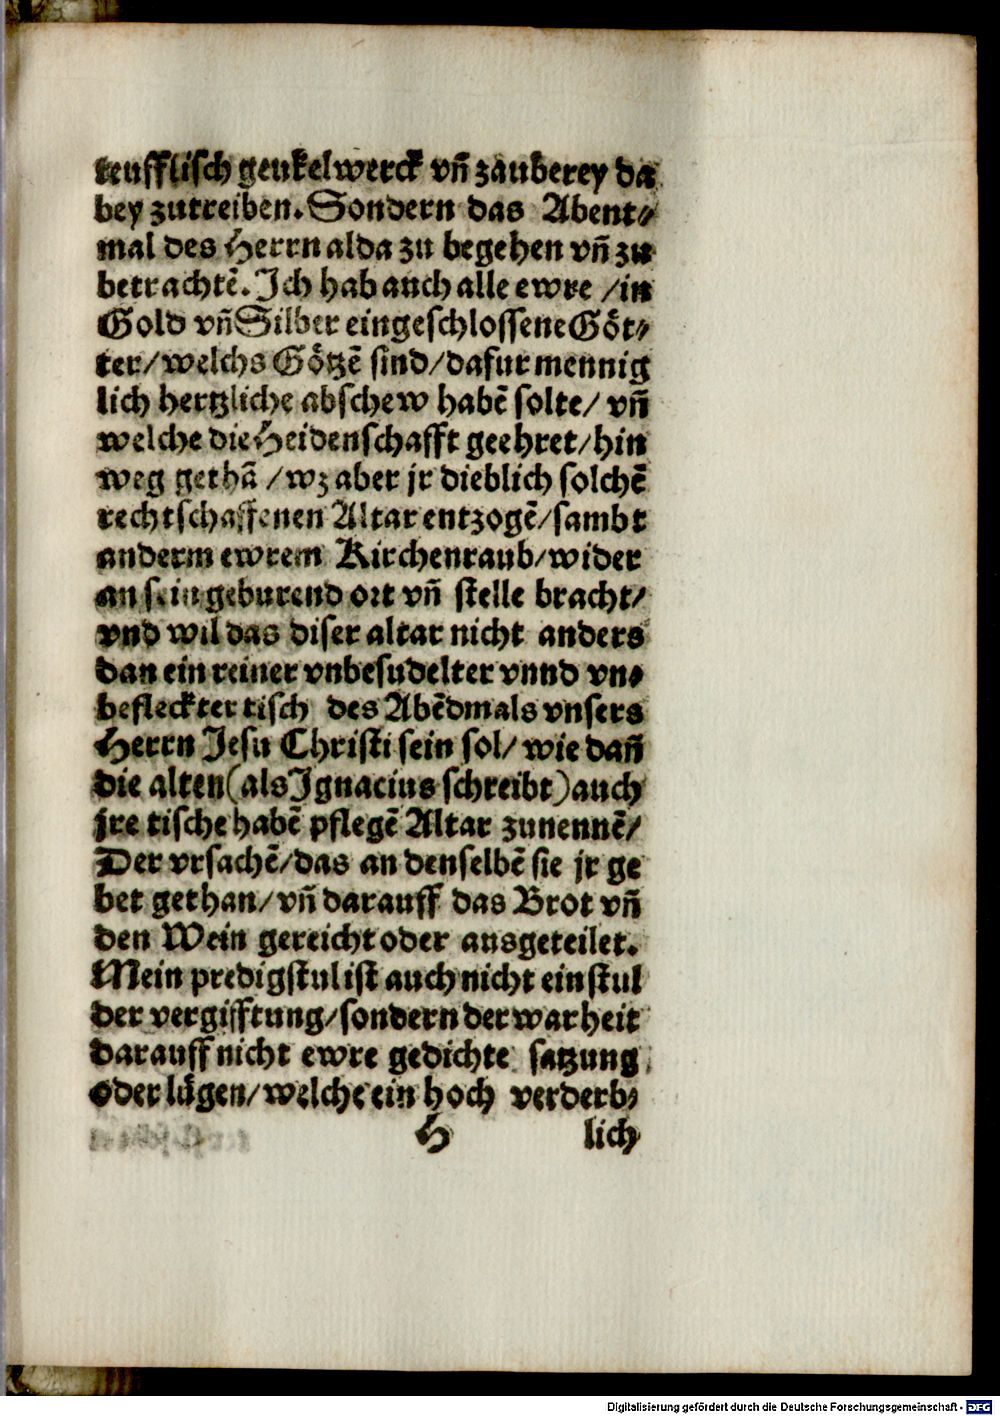 teufflisch geukelwerck vñ zauberey da
bey zutreiben. Sondern das Abent⸗
mal des Herrn alda zu begehen vñ zu
betrachtẽ. Ich hab auch alle ewre /in
Gold vñ Silber eingeschlossene Göt⸗
ter/welchs Götzẽ sind/dafur mennig
lich hertzliche abschew habẽ solte/ vñ
welche die Heidenschafft geehret/hin
weg gethã /wz aber jr dieblich solchẽ
rechtschaffenen Altar entzogẽ/sambt
anderm ewrem Kirchenraub/wider
an sein geburend ort vñ stelle bracht/
vnd wil das diser altar nicht anders
dan ein reiner vnbesudelter vnnd vn⸗
befleckter tisch des Abẽdmals vnsers
Herrn Jesu Christi sein sol/ wie dañ
die alten(als Ignacius schreibt)auch
jre tische habẽ pflegẽ Altar zunennẽ/
Der vrsachẽ/das an denselbẽ sie jr ge
bet gethan/vñ darauff das Brot vñ
den Wein gereicht oder ausgeteilet.
Mein predigstul ist auch nicht ein stul
der vergifftung/sondern der warheit
darauff nicht ewre gedichte satzung
oder lügen/welche ein hoch verderb⸗
H lich
Digitalisierung gefördert durch die Deutsche Forschungsgemeinschaft - DFG